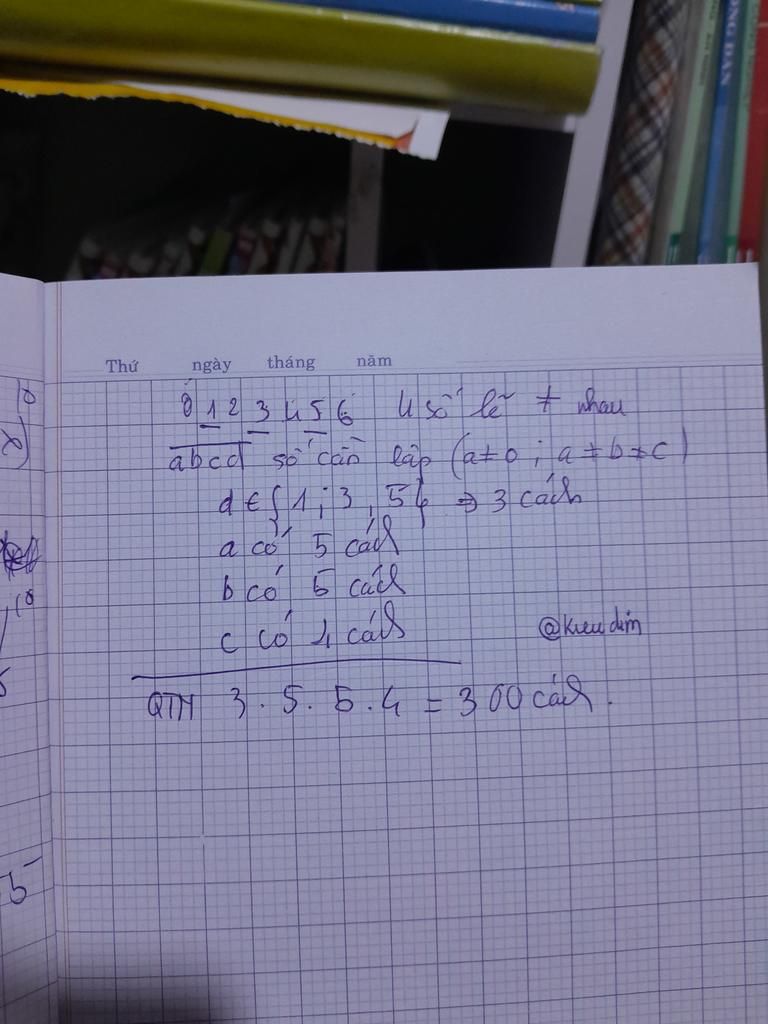 Thứ ngày tháng năm
0 1 2 3 4 5 6 4 số lẽ ≠ nhau
abcd số cần lập (a≠0 ; a≠b≠c)
d ∈ {1 ; 3 , 5} ⇒ 3 cách
a có 5 cách
b có 5 cách
c có 4 cách
@kieudim
QTN 3 . 5 . 5 . 4 = 300 cách .